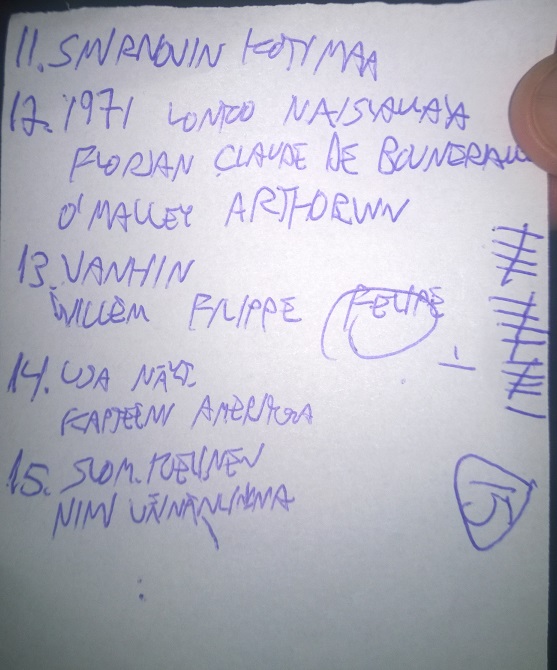 11. SMURNOVIN KOTIMAA
12. 1971 LONTOO NAISVALLAYA
FLORIAN CLAUDE DE BOUNERAU
O'MALLEY ARTHORWN
13. VANHIN
WILLEM FILIPPE FELIPE
14. USA NÄYT.
KAPTEENI AMERIKKA
15. SUOM. KIELINEN
NIMI VÄINÄNLINNA
15